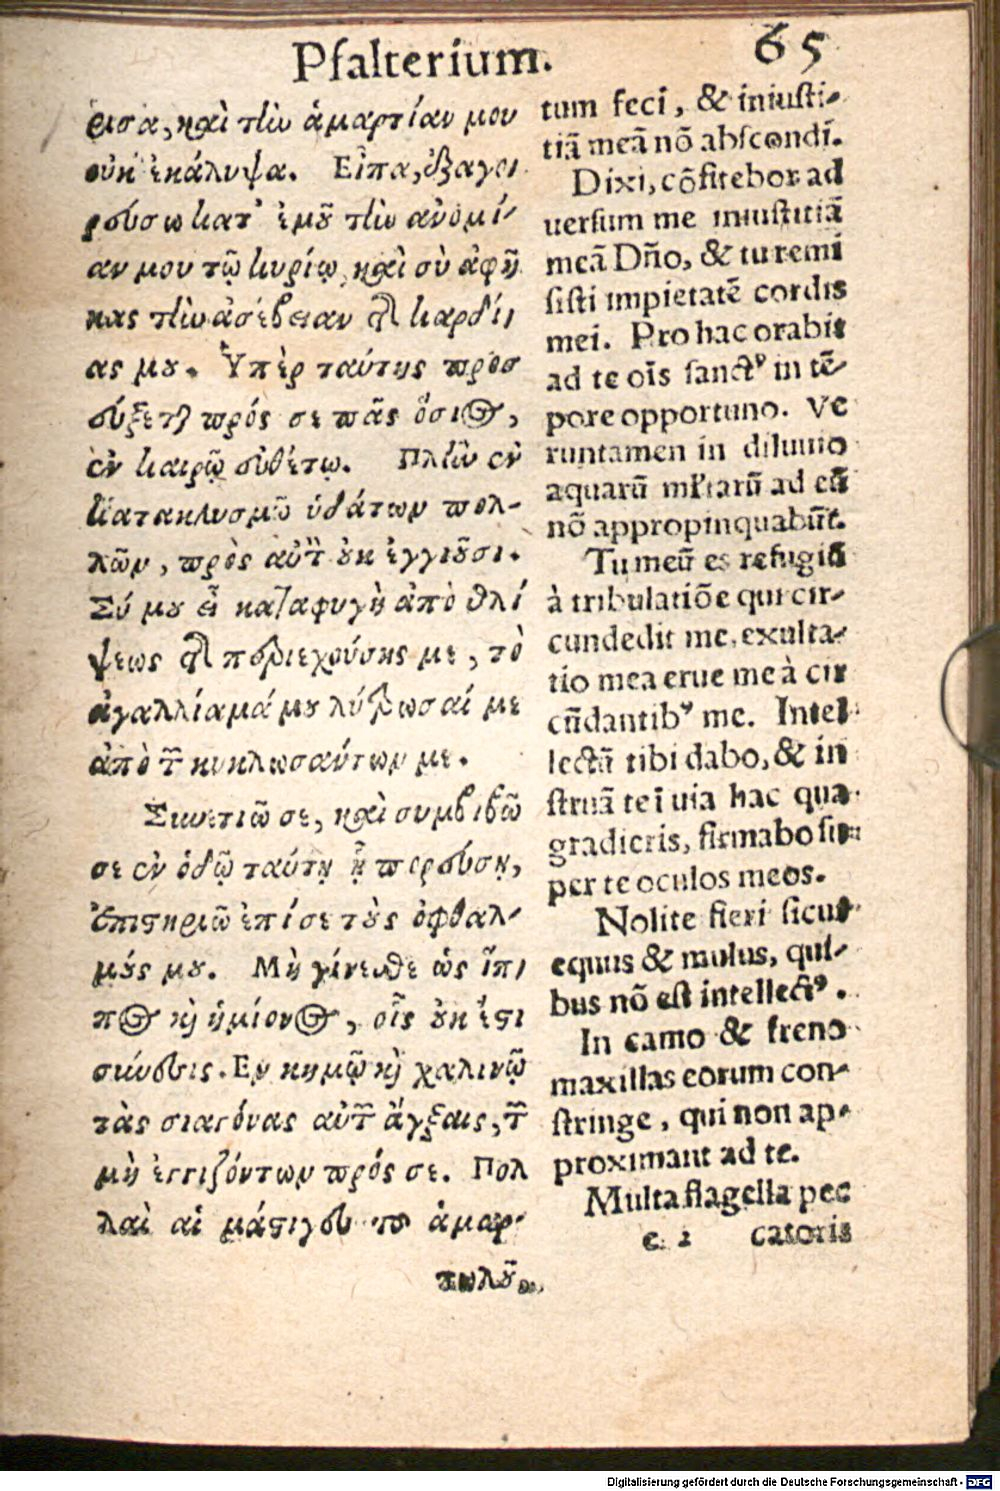 Psalterium. 65
ρισα, καὶ τὴν ἁμαρτίαν μου
οὐκ ἐκάλυψα. Εἶπα, ἐξαγο
ρεύσω κατ' ἐμοῦ τὴν ἀνομί-
αν μου τῷ κυρίῳ, καὶ σὺ ἀφῆ
κας τὴν ἀσέβειαν τῆς καρδί
ας μου. Ὑπὲρ ταύτης προσ
εύξεται πρός σε πᾶς ὅσιος,
ἐν καιρῷ εὐθέτῳ. Πλὴν ἐν
κατακλυσμῷ ὑδάτων πολ-
λῶν, πρὸς αὐτὸν οὐκ ἐγγιοῦσι.
Σύ μου εἶ καταφυγὴ ἀπὸ θλί
ψεως τῆς περιεχούσης με, τὸ
ἀγαλλίαμά μου λύτρωσαί με
ἀπὸ τῶν κυκλωσάντων με.
Συνετιῶ σε, καὶ συμβιβῶ
σε ἐν ὁδῷ ταύτῃ ᾗ πορεύσῃ,
ἐπιστηριῶ ἐπί σε τοὺς ὀφθαλ-
μούς μου. Μὴ γίνεσθε ὡς ἵπ
πος καὶ ἡμίονος, οἷς οὐκ ἔστι
σύνεσις. Εν κημῷ καὶ χαλινῷ
τὰς σιαγόνας αὐτῶν ἄγξαις, τῶν
μὴ ἐγγιζόντων πρός σε. Πολ
λαὶ αἱ μάστιγες τοῦ ἁμαρ-
τωλοῦ.
tum feci, & iniusti-
tiā meā nō abscondi.
Dixi, cōfitebor ad
uersum me iniustitiā
meā Dño, & tu remi
sisti impietatē cordis
mei. Pro hac orabit
ad te oīs sanctꝰ in tē-
pore opportuno. Ve
runtamen in diluuio
aquarū mĺtarū ad eū
nō appropinquabūt.
Tu meū es refugiū
à tribulatiōe qui cir-
cundedit me, exulta-
tio mea erue me à cir
cūdantibꝰ me. Intel-
lectū tibi dabo, & in
struā te ī uia hac qua
gradieris, firmabo su-
per te oculos meos.
Nolite fieri sicut
equus & mulus, qui-
bus nō est intellectꝰ.
In camo & freno
maxillas eorum con-
stringe, qui non ap-
proximant ad te.
Multa flagella pec
e 2 catoris
Digitalisierung gefördert durch die Deutsche Forschungsgemeinschaft - DFG